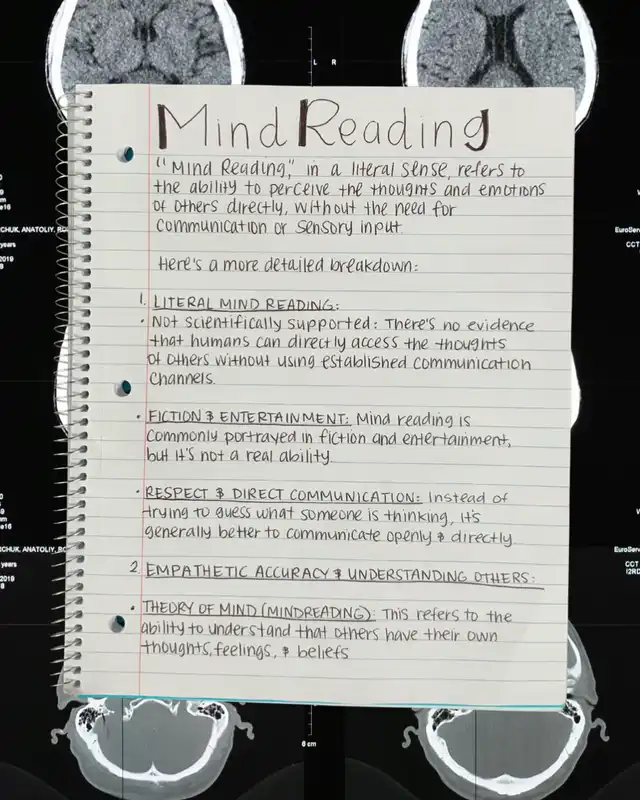 L R
MindReading
"Mind Reading," in a literal sense, refers to
the ability to perceive the thoughts and emotions
of others directly, without the need for
communication or sensory input.
Here's a more detailed breakdown:
1. LITERAL MIND READING:
• Not scientifically supported: There's no evidence
that humans can directly access the thoughts
of others without using established communication
channels.
• FICTION & ENTERTAINMENT: Mind reading is
commonly portrayed in fiction and entertainment,
but it's not a real ability.
• RESPECT & DIRECT COMMUNICATION: Instead of
trying to guess what someone is thinking, it's
generally better to communicate openly & directly.
2. EMPATHETIC ACCURACY & UNDERSTANDING OTHERS:
• THEORY OF MIND (MINDREADING): This refers to the
ability to understand that others have their own
thoughts, feelings, & beliefs
CHUK, ANATOLIY,
years
2019
EuroServ
CCT
6 cm